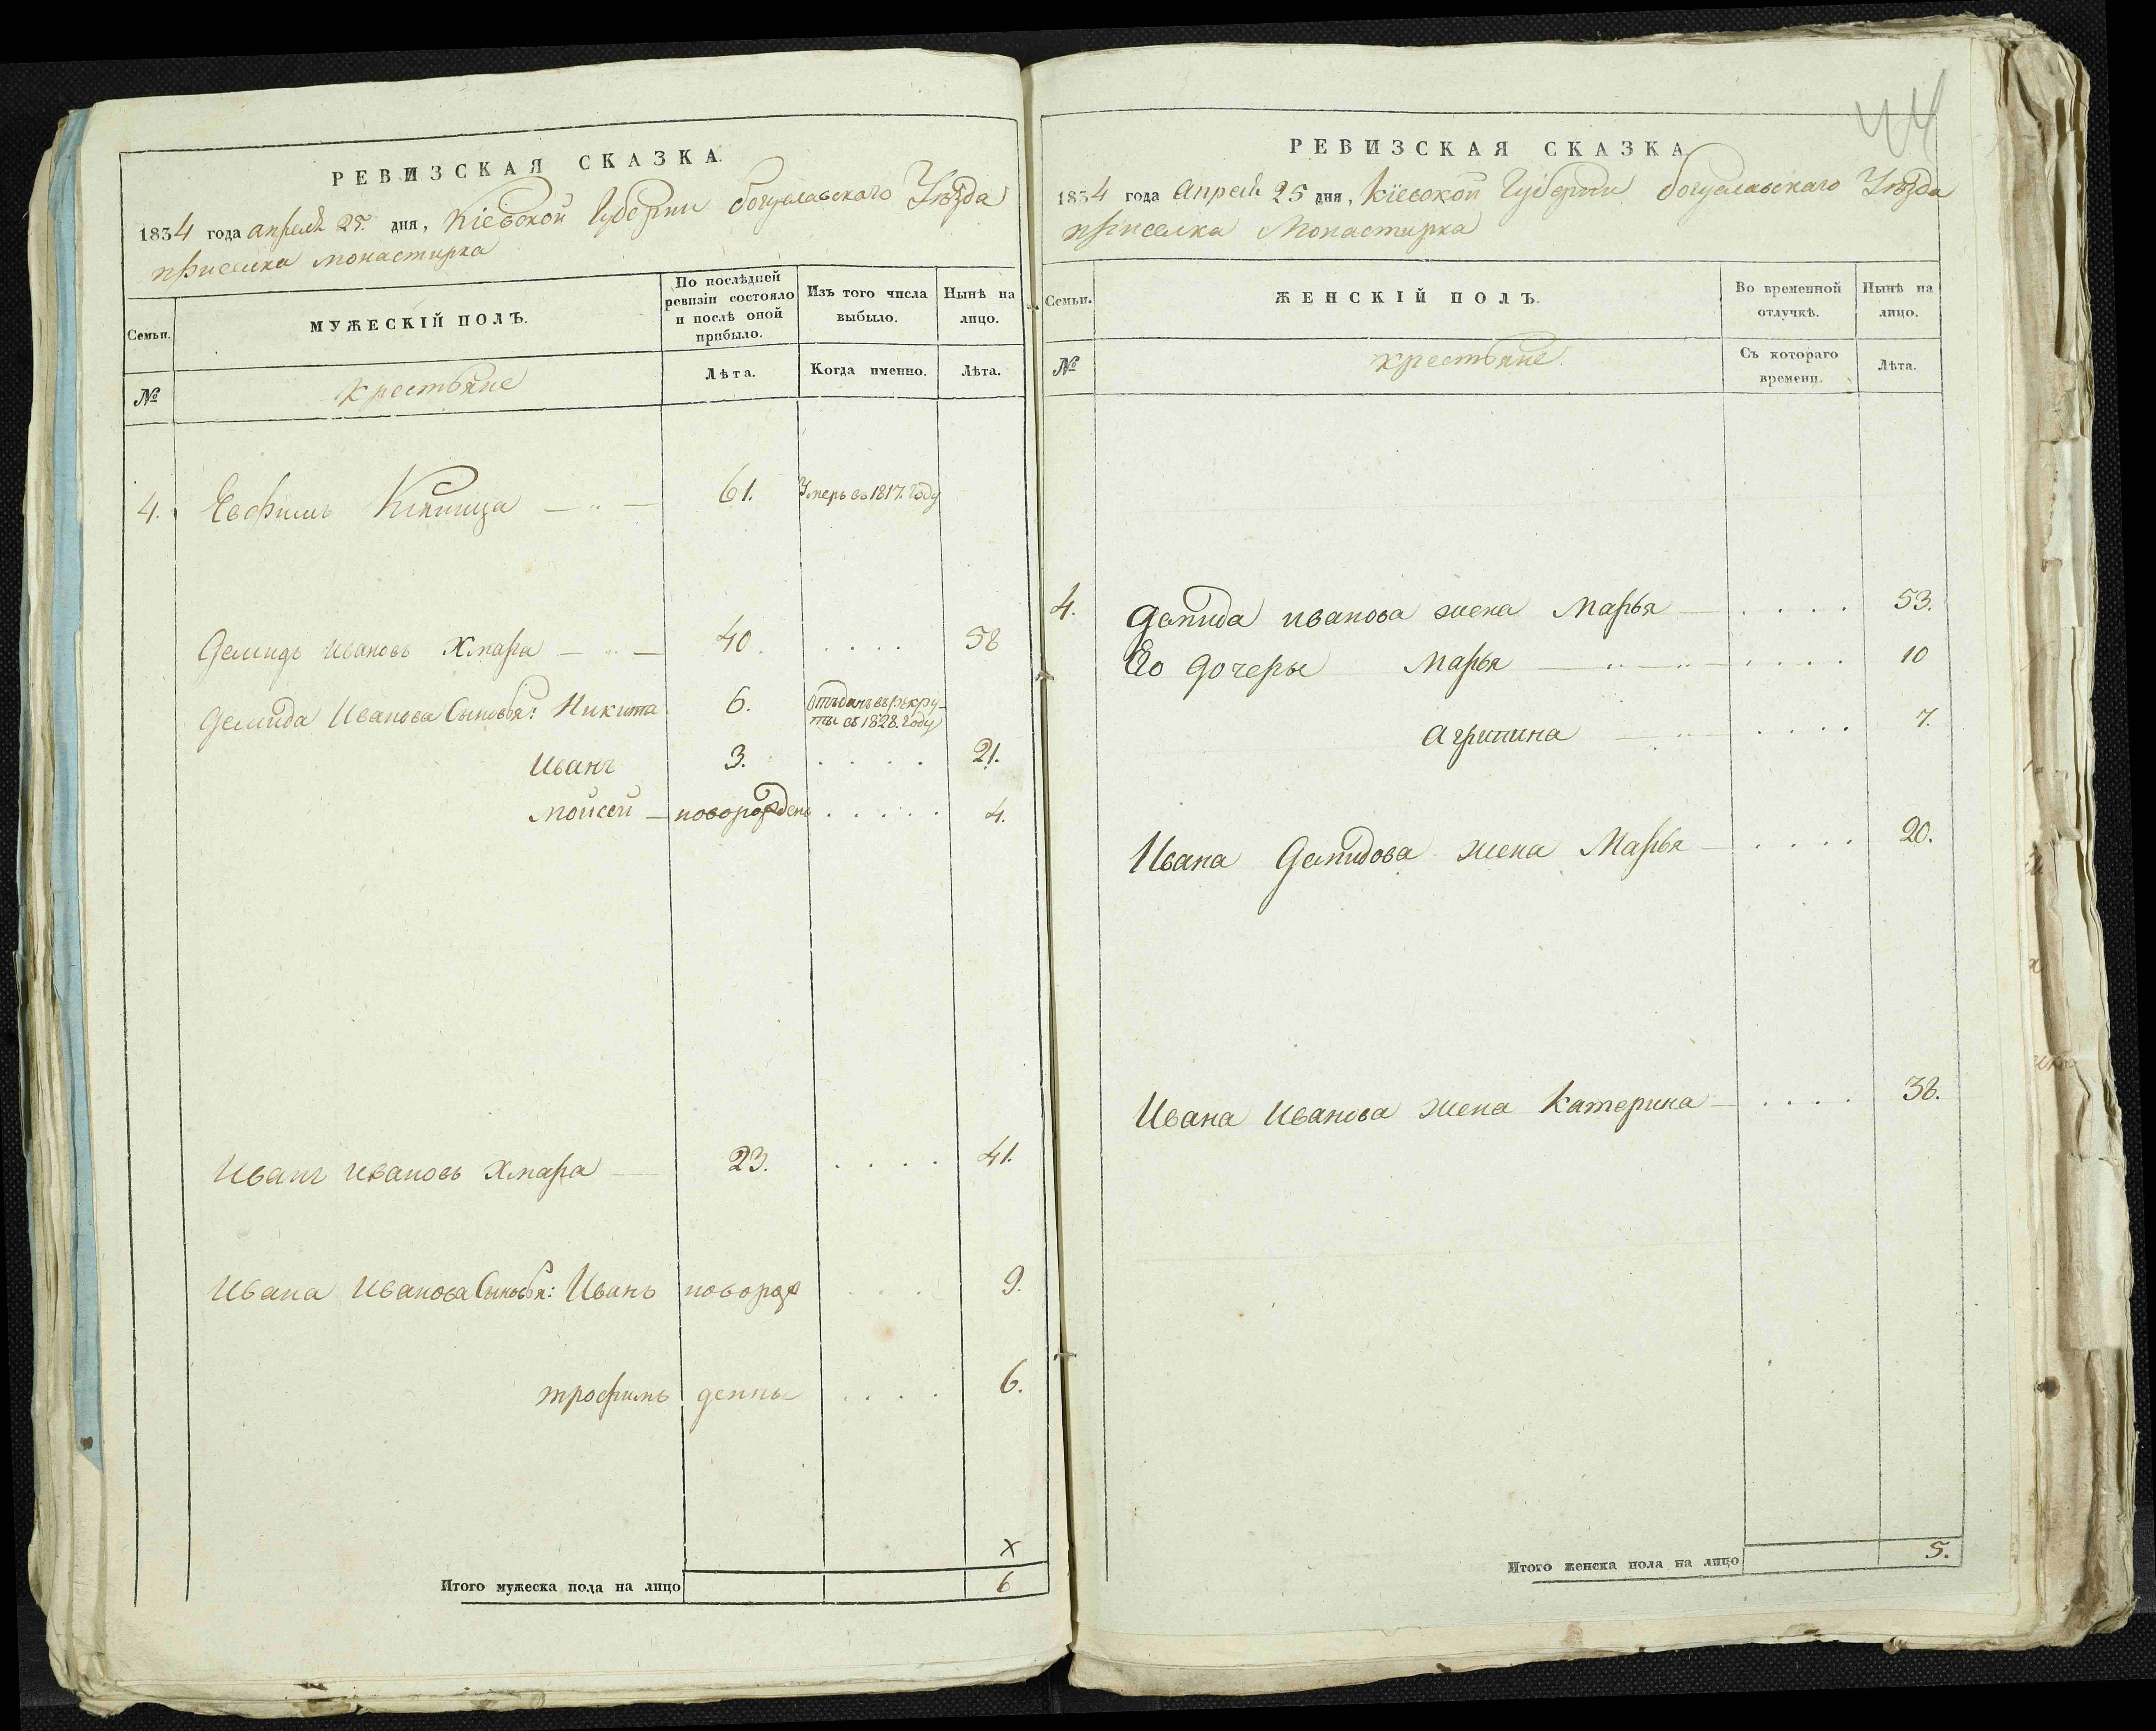 РЕВИЗСКАЯ СКАЗКА.
1834 года апреля 25 дня, Кіевской Губерніи богуславскаго Уѣзда
приселка монастирка
Семьи.
МУЖЕСКІЙ ПОЛЪ.
По послѣдней ревизіи состояло и послѣ оной прибыло.
Изъ того числа выбыло.
Нынѣ на лицо.
№
крестьяне
Лѣта.
Когда именно.
Лѣта.
4. Евфимъ 61. Умеръ въ 1817. году
Демидъ Ивановъ Хмара 40. 58
Демида Иванова Сыновья: Никита 6. Отъданъ въ рекру-
ты въ 1828. году
Иванъ 3. 21.
Мойсей новорожденъ 4.
Иванъ Ивановъ Хмара 23. 41.
Ивана Иванова Сыновья: Иванъ новорож 9.
трофимъ денны 6.
х
Итого мужеска пола на лицо 6
44
РЕВИЗСКАЯ СКАЗКА
1834 года Апреля 25 дня, Кіевской Губерніи богуславскаго Уѣзда
приселка Монастирка
Семьи.
ЖЕНСКІЙ ПОЛЪ.
Во временной отлучкѣ.
Нынѣ на лицо.
№
крестьяне.
Съ котораго времени.
Лѣта.
4. Демида иванова жена Марья 53.
Его дочеры Марья 10
Агрипина 7.
Ивана Демидова жена Марья 20.
Ивана Иванова жена Катерина 38.
Итого женска пола на лицо 5.